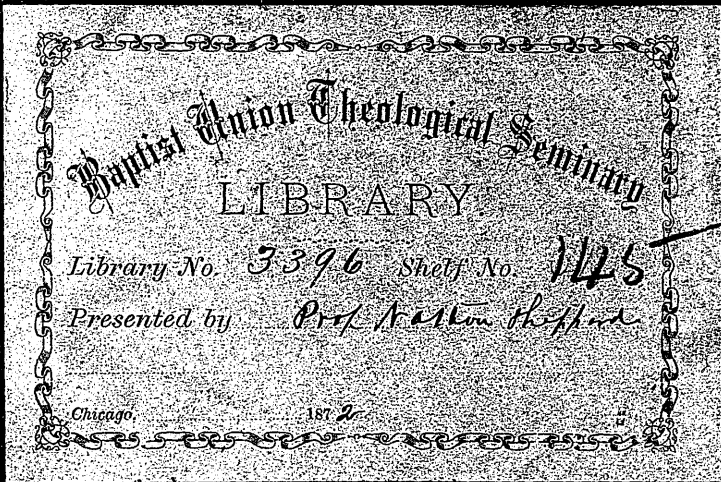 Baptist Union Theological Seminary
LIBRARY.
Library No. 3396 Shelf No.
Presented by Prof Nathan Sheppard
Chicago, 1872